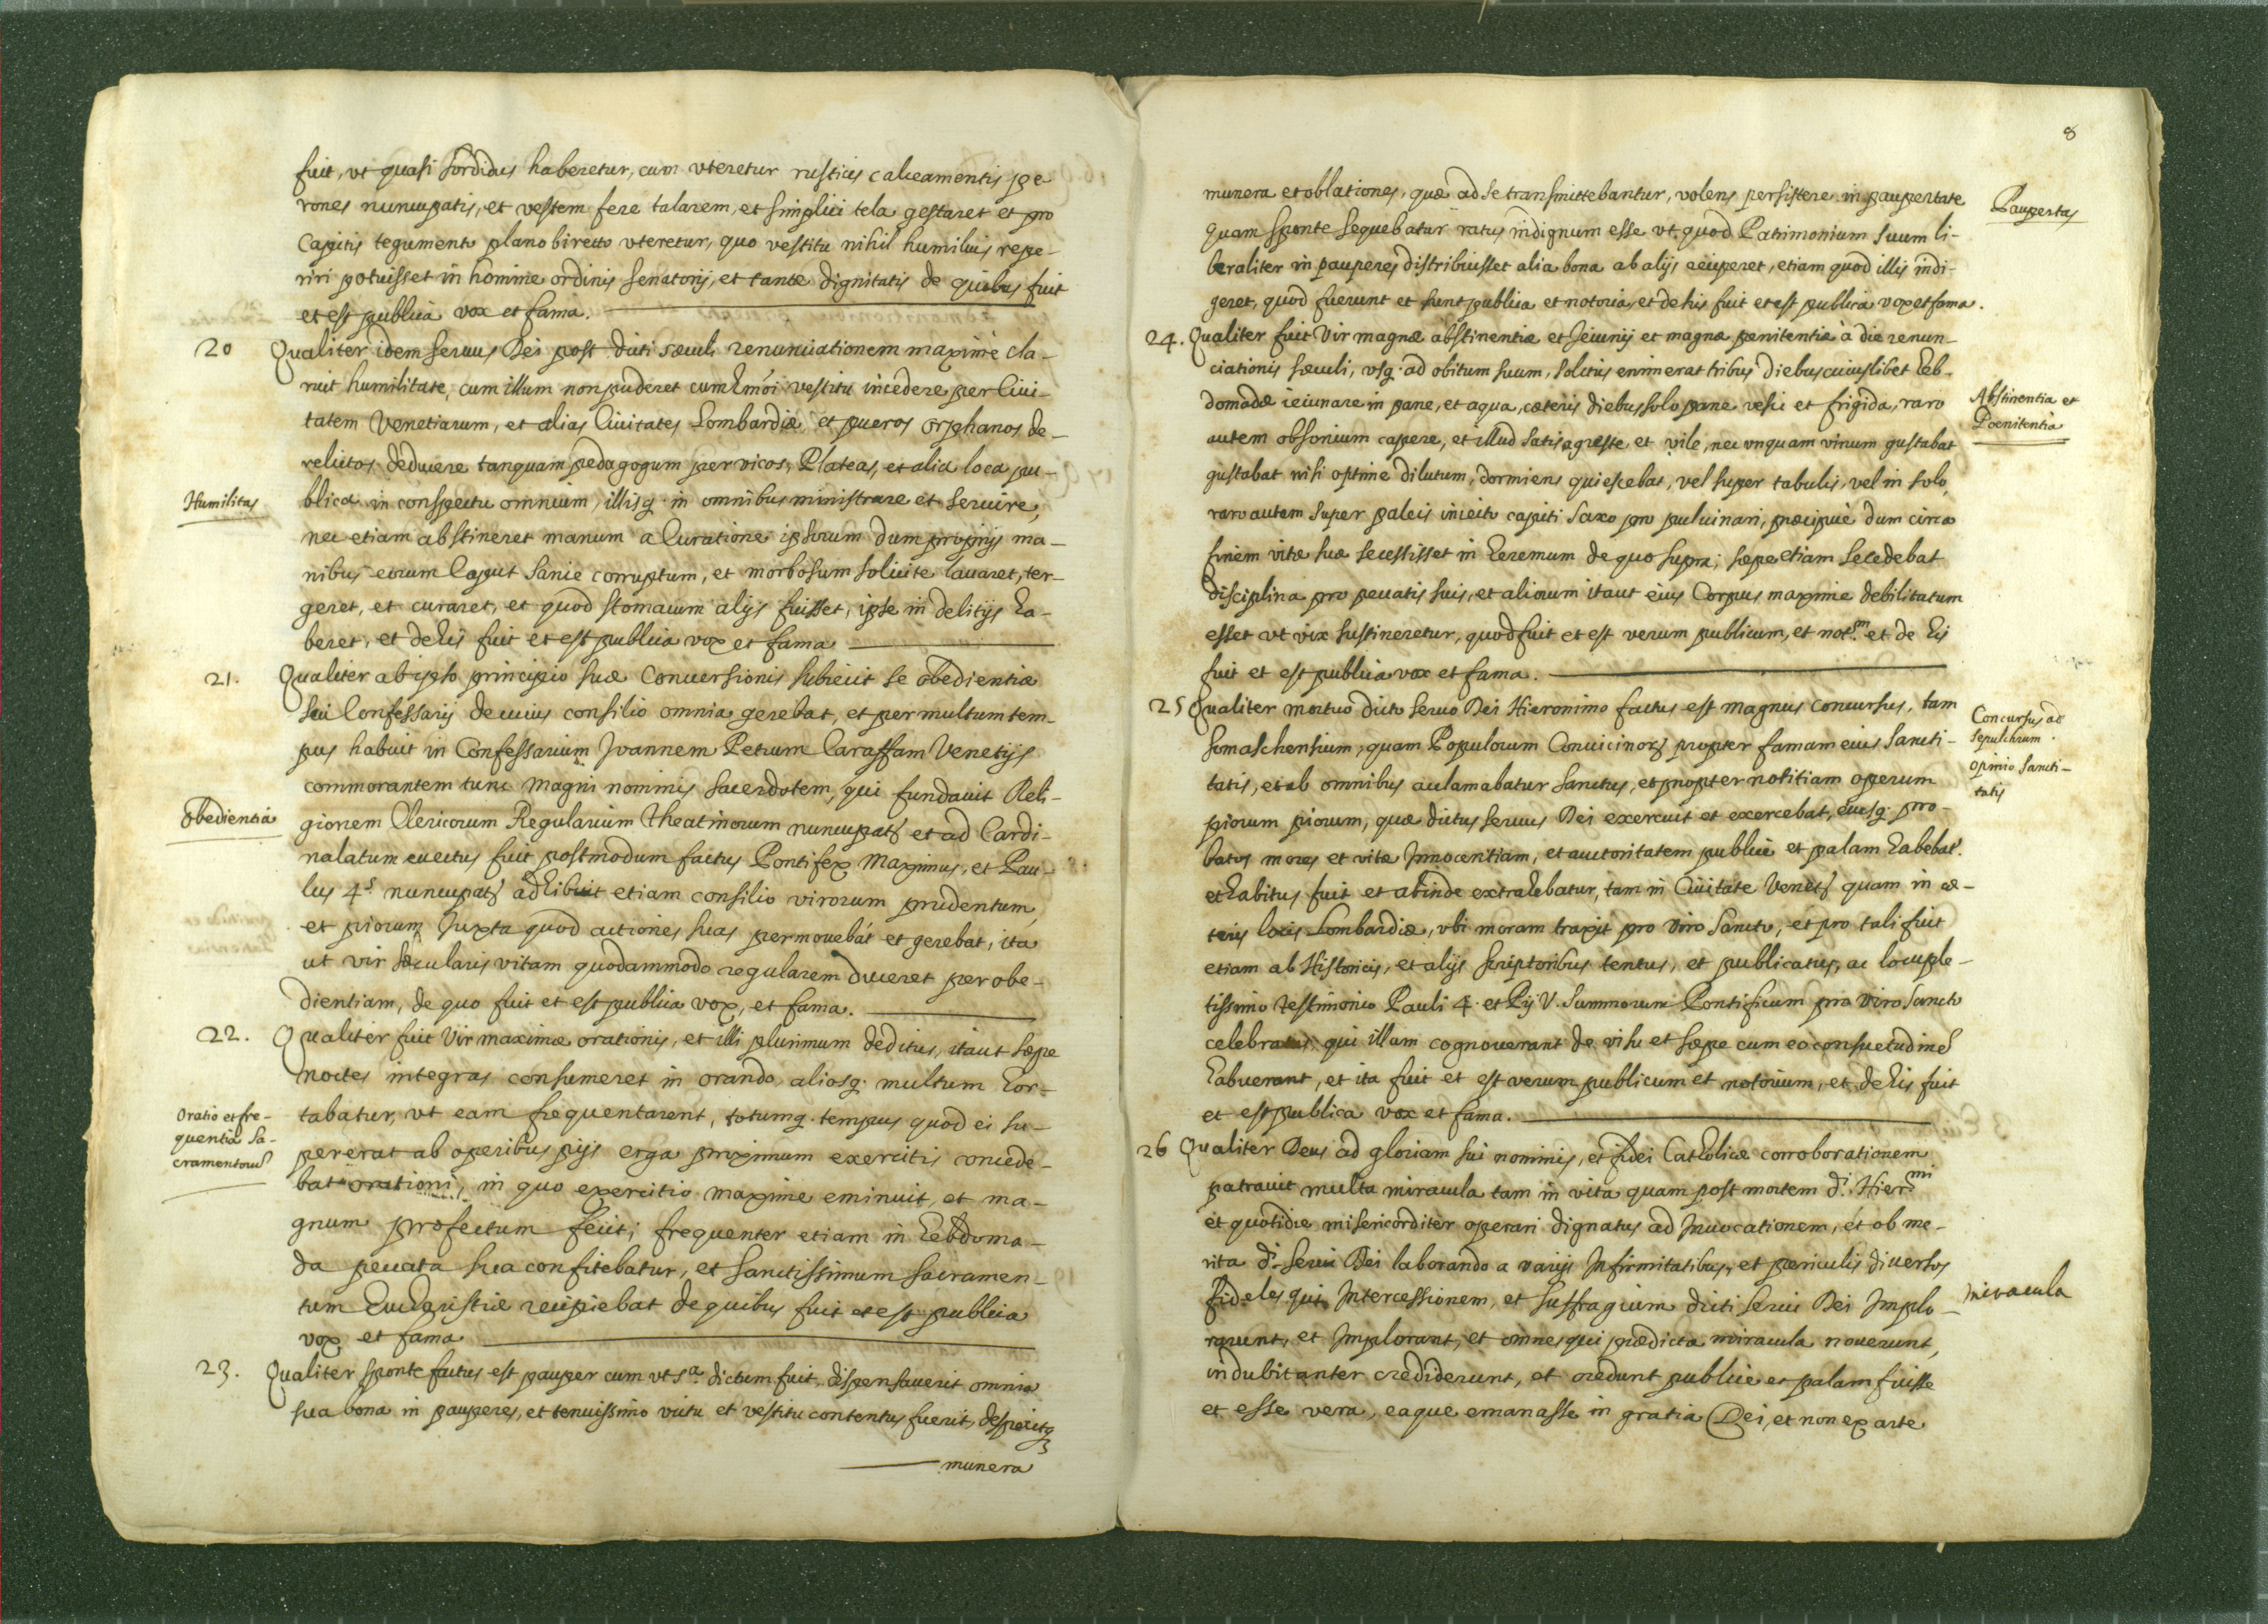 fuit, vt quasi sordidus haberetur, cum vteretur rusticis calceamentis pe
rones nuncupatis, et vestem fere talarem, et simplici tela gestaret et pro
Capitis tegumento plano bireto vteretur, quo vestitu nihil humilius repe-
riri potuisset in homine ordinis senatorij, et tantæ dignitatis de quibus fuit
et est publica vox et fama.
20 Qualiter idem seruus Dei post dicti sæculi renunciationem maximè cla-
ruit humilitate, cum illum non puderet cum vestitu incedere per Ciui-
tatem Venetiarum, et alias Ciuitates Lombardiæ et pueros orphanos de-
relictos deducere tanquam pedagogum per vicos, Plateas, et alia loca pu-
Humilitas
blica in conspectu omnium, illisq. in omnibus ministrare et seruire,
nec etiam abstineret manum a Curatione ipsorum dum proprijs ma-
nibus eorum Caput sanie corruptum, et morbosum solicite lauaret, ter-
geret, et curaret, et quod stomacum alijs fuisset, ipse in delitijs ha-
beret, et de his fuit et est publica vox et fama
21. Qualiter ab ipso principio suæ Conuersionis subiecit se obedientiæ
sui Confessarij de cuius consilio omnia gerebat, et per multum tem-
pus habuit in Confessarium Joannem Petrum Caraffam Venetijs
commorantem tunc magni nominis sacerdotem, qui fundauit Reli-
obedientia
gionem Clericorum Regularium Theatinorum nuncupat et ad Cardi-
nalatum euectus fuit postmodum factus Pontifex Maximus, et Pau-
lus 4.s nuncupat adhibuit etiam consilio virorum prudentum,
et piorum Juxta quod actiones suas permouebat et gerebat, ita
ut vir sæcularis vitam quodammodo regularem duceret per obe-
dientiam, de quo fuit et est publica vox, et fama.
22. Qualiter fuit Vir maximæ orationis, et illi plurimum deditus, itaut sæpe
noctes integras consumeret in orando, aliosq. multum hor-
Oratio et fre-
quentia Sa-
cramentorum
tabatur, vt eam frequentarent, totumq. tempus quod ei su-
pererat ab operibus pijs erga proximum exercitis concede-
bat orationi, in quo exercitio maxime eminuit, et ma-
gnum profectum fecit; frequenter etiam in hebdoma-
da peccata sua confitebatur, et sanctissimum sacramen-
tum Eucharistiæ recipiebat de quibus fuit et est publica
vox et fama
23. Qualiter sponte factus est pauper cum vt s.a dictum fuit, dispensauerit omnia
sua bona in pauperes, et tenuissimo victu et vestitu contentus fuerit, despexitq
munera
8
munera et oblationes, quæ ad se transmittebantur, volens persistere in paupertate
Paupertas
quam sponte sequebatur ratus indignum esse vt quod Patrimonium suum li-
beraliter in pauperes distribuisset alia bona ab alijs acciperet, etiam quod illis indi-
geret, quod fuerunt et sunt publica et notoria, et de his fuit et est publica vox et fama.
24. Qualiter fuit Vir magnæ abstinentiæ et Jeiunij et magnæ pænitentiæ à die renun-
ciationis sæculi, vsq. ad obitum suum, solitus enim erat tribus diebus cuiuslibet heb-
domadæ ieiunare in pane, et aqua, cæteris diebus solo pane vesci et frigida, raro
Abstinentia et
Poenitentia
autem obsonium capere, et illud satis agreste et vile, nec vnquam vinum gustabat
gustabat nisi optime dilutum, dormiens quiescebat, vel super tabulis, vel in solo,
raro autem super paleis iniecto capiti saxo pro puluinari, præcipuè dum circa
finem vitæ suæ secessisset in heremum de quo supra; sæpe etiam se cedebat
disciplina pro peccatis suis, et aliorum itaut eius Corpus maxime debilitatum
esset vt vix sustineretur, quod fuit et est verum publicum, et not.m et de his
fuit et est publica vox et fama.
25 Qualiter mortuo dicto seruo Dei Hieronimo factus est magnus concursus, tam
Concursus ad
sepulchrum.
opinio sancti-
tatis
Somaschensium, quam Populorum Conuicinor propter famam eius sancti-
tatis, et ab omnibus acclamabatur sanctus, et propter notitiam operum
piorum, quæ dictus seruus Dei exercuit et exercebat, eiusq. pro-
batos mores et vitæ Innocentiam, et auctoritatem publicè et palam habebat.
et habitus fuit et ab inde extrahebatur, tam in Ciuitate Venet quam in cæ-
teris locis Lombardiæ, vbi moram traxit pro viro Sancto, et pro tali fuit
etiam ab Historicis, et alijs scriptoribus tentus, et publicatus, ac locuple-
tissimo testimonio Pauli 4. et Pij V. Summorum Pontificum pro Viro Sancto
celebratus qui illum cognouerant de visu et sæpe cum eo consuetudine
habuerant, et ita fuit et est verum publicum et notorium, et de his fuit
et est publica vox et fama.
26 Qualiter Deus ad gloriam sui nominis, et fidei Catholicæ corroborationem
patrauit multa miracula tam in vita quam post mortem d.i Hier.mi
et quotidie misericorditer operari dignatus ad Inuocationem, et ob me-
rita d.i serui Dei laborando a varijs Infirmitatibus, et periculis diuersos
miracula
Fideles qui Intercessionem, et suffragium dicti serui Dei Implo-
rarunt, et Implorant, et omnes qui prædicta miracula nouerunt,
indubitanter crediderunt, et credunt publicè et palam fuisse
et esse vera, eaque emanasse in gratia Dei, et non ex arte